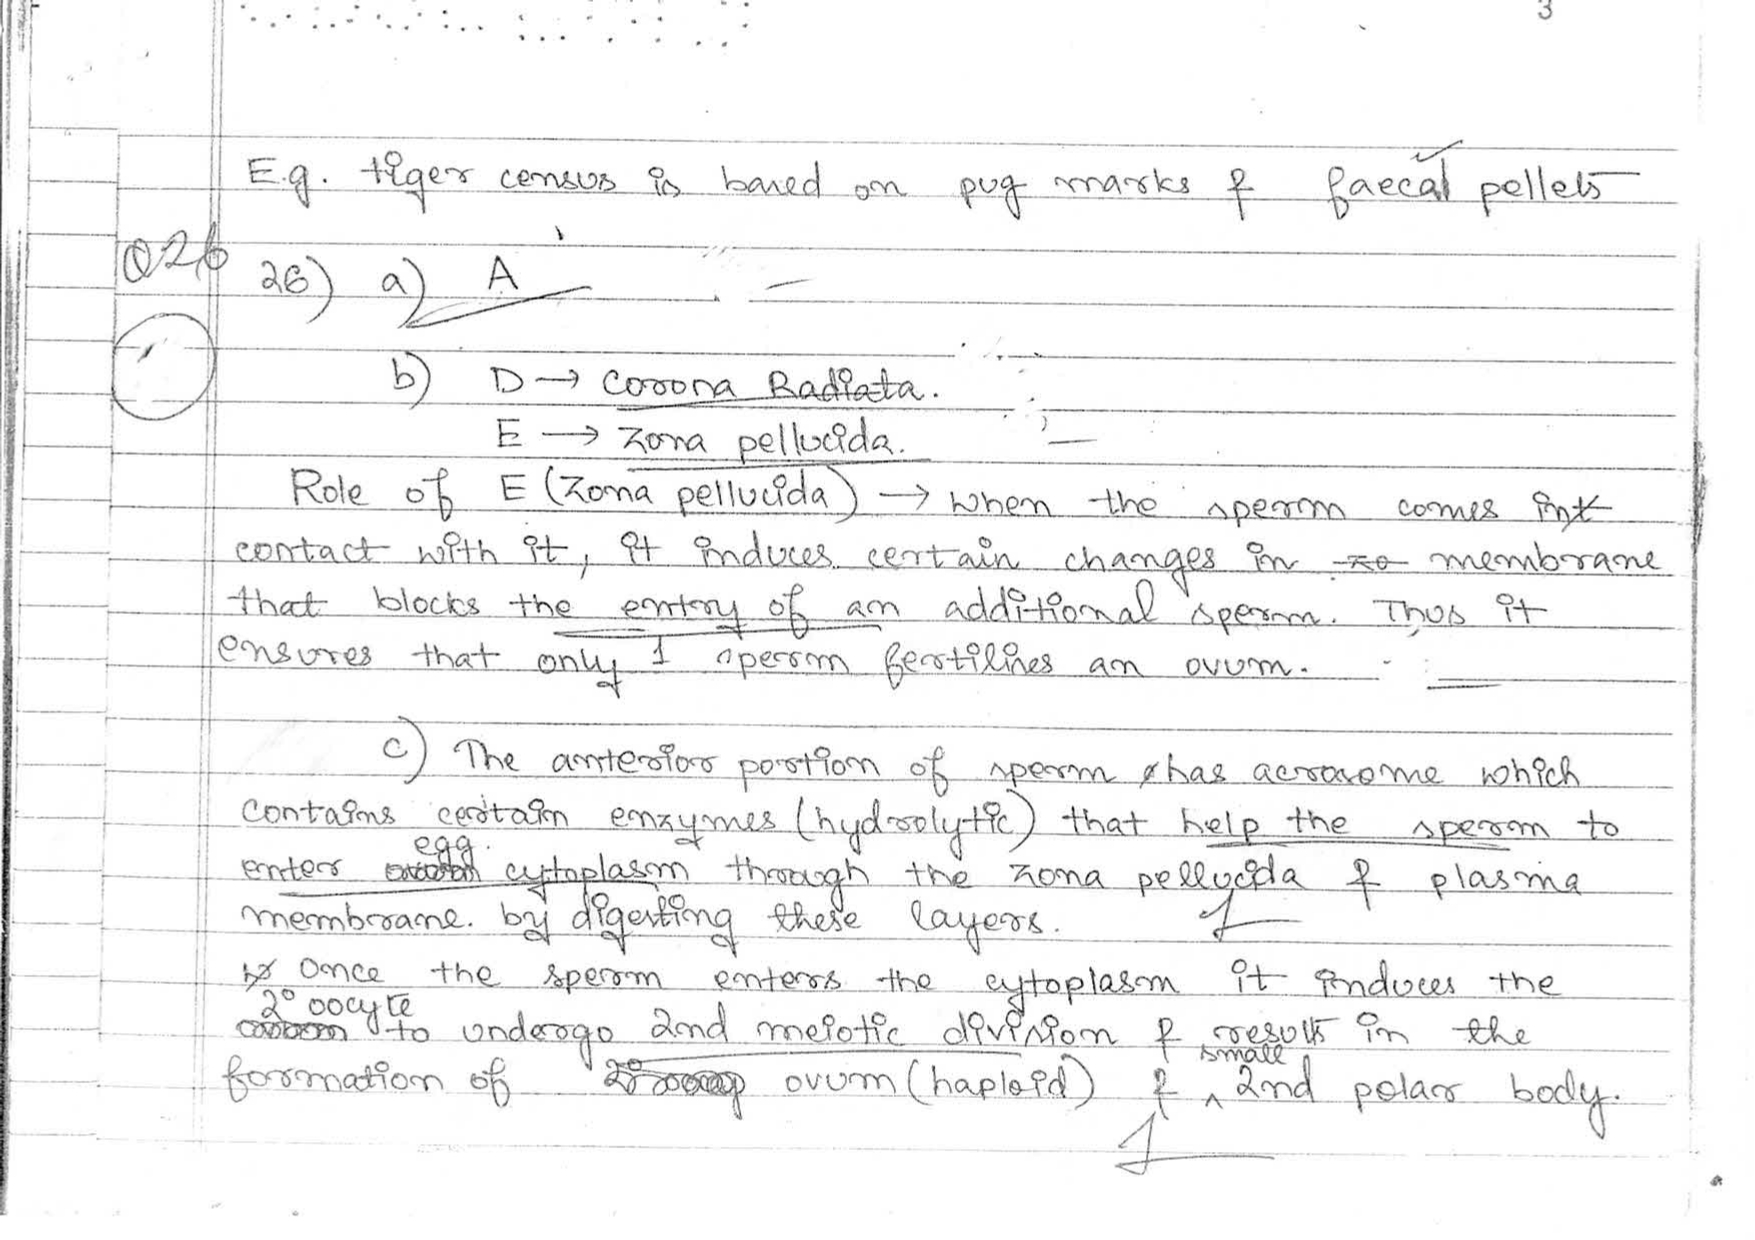 3
E.g. tiger census is based on pug marks & faecal pellets
Q26
26) a) A
b) D → Corona Radiata.
E → Zona pellucida.
Role of E (Zona pellucida) → When the sperm comes int
contact with it, it induces certain changes in membrane
that blocks the entry of an additional sperm. Thus it
ensures that only 1 sperm fertilises an ovum.
c) The anterior portion of sperm has acrosome which
contains certain enzymes (hydrolytic) that help the sperm to
enter egg cytoplasm through the zona pellucida & plasma
membrane. by digesting these layers.
1
Once the sperm enters the cytoplasm it induces the
2° oocyte to undergo 2nd meiotic division & results in the
formation of ovum (haploid) & small 2nd polar body.
1